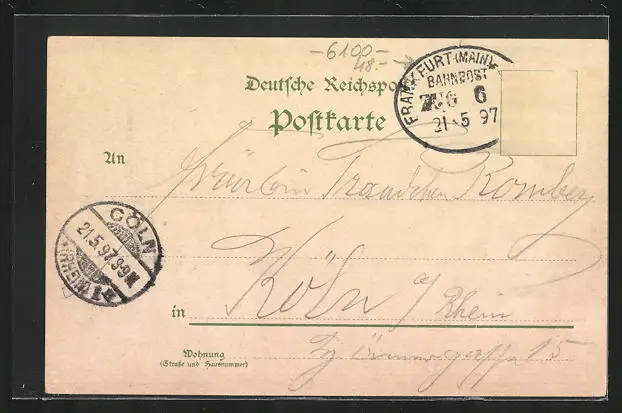 -6100-
48.-
FRANKFURT (MAIN)
BAHNPOST
ZUG 6
21.5.97
Deutsche Reichspo
Postkarte
An
Fräulein Traudchen Romberg
CÖLN
21.5.97 8-9N
in Köln a/ Rhein
15
Wohnung
(Straße und Hausnummer)